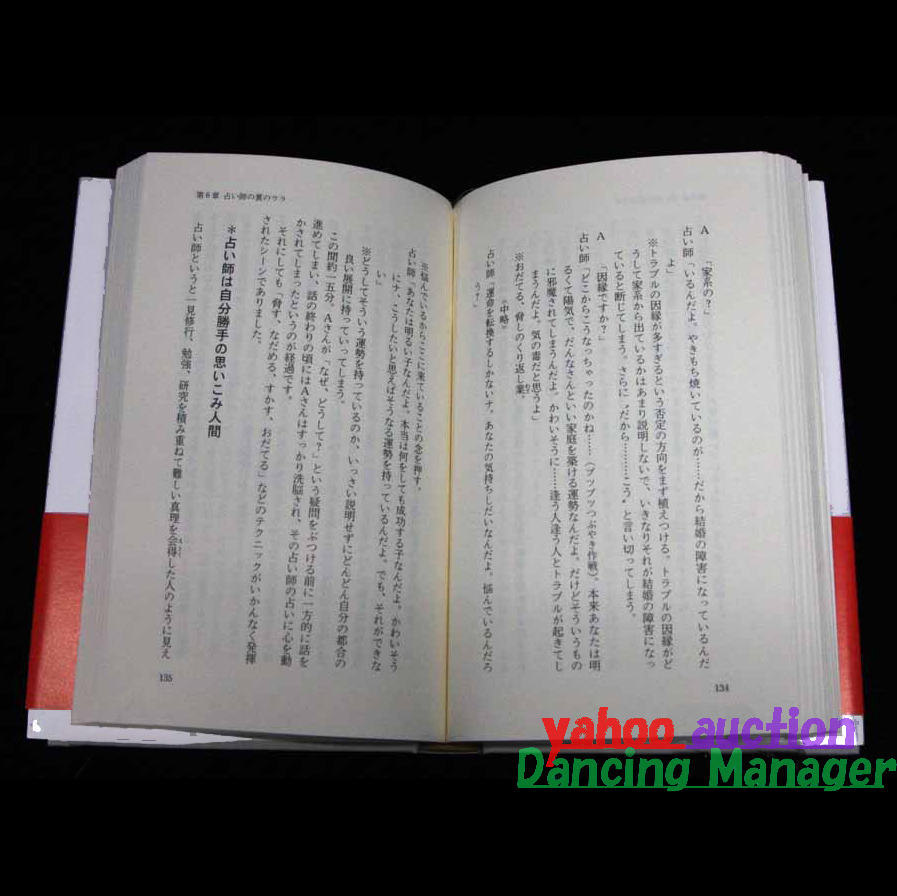 A　「家系の？」
占い師「いるんだよ。やきもち焼いているのが……だから結婚の障害になっているんだ
よ」
※トラブルの因縁が多すぎるという否定の方向をまず植えつける。トラブルの因縁がど
うして家系から出ているかはあまり説明しないで、いきなりそれが結婚の障害になっ
ていると断じてしまう。さらに〝だから…………こう〟と言い切ってしまう。
A　「因縁ですか？」
占い師「どこからこうなっちゃったのかね……（ブツブツつぶやき作戦）。本来あなたは明
るくて陽気で、だんなさんといい家庭を築ける運勢なんだよ。だけどそういうもの
に邪魔されてしまうんだよ。かわいそうに……逢う人逢う人とトラブルが起きてし
まうんだよ。気の毒だと思うよ」
※おだてる、脅しのくり返し業。
＝中略＝
占い師「運命を転換するしかないナ。あなたの気持ちしだいなんだよ。悩んでいるんだろ
う？」
134
第6章 占い師の裏のウラ
※悩んでいるからここに来ていることの念を押す。
占い師「あなたは明るい子なんだよ。本当は何をしても成功する子なんだよ。かわいそう
にナ、こうしたいと思えばそうなる運勢を持っているんだよ。でも、それができな
い」
※どうしてそういう運勢を持っているのか、いっさい説明せずにどんどん自分の都合の
良い展開に持っていってしまう。
この間約一五分。Aさんが「なぜ、どうして？」という疑問をぶつける前に一方的に話を
進めてしまい、話の終わりの頃にはAさんはすっかり洗脳され、その占い師の占いに心を動
かされてしまったというのが経過です。
それにしても「脅す、なだめる、すかす、おだてる」などのテクニックがいかんなく発揮
されたシーンでありました。
＊占い師は自分勝手の思いこみ人間
占い師というと一見修行、勉強、研究を積み重ねて難しい真理を会得した人のように見え
135
yahoo auction
Dancing Manager